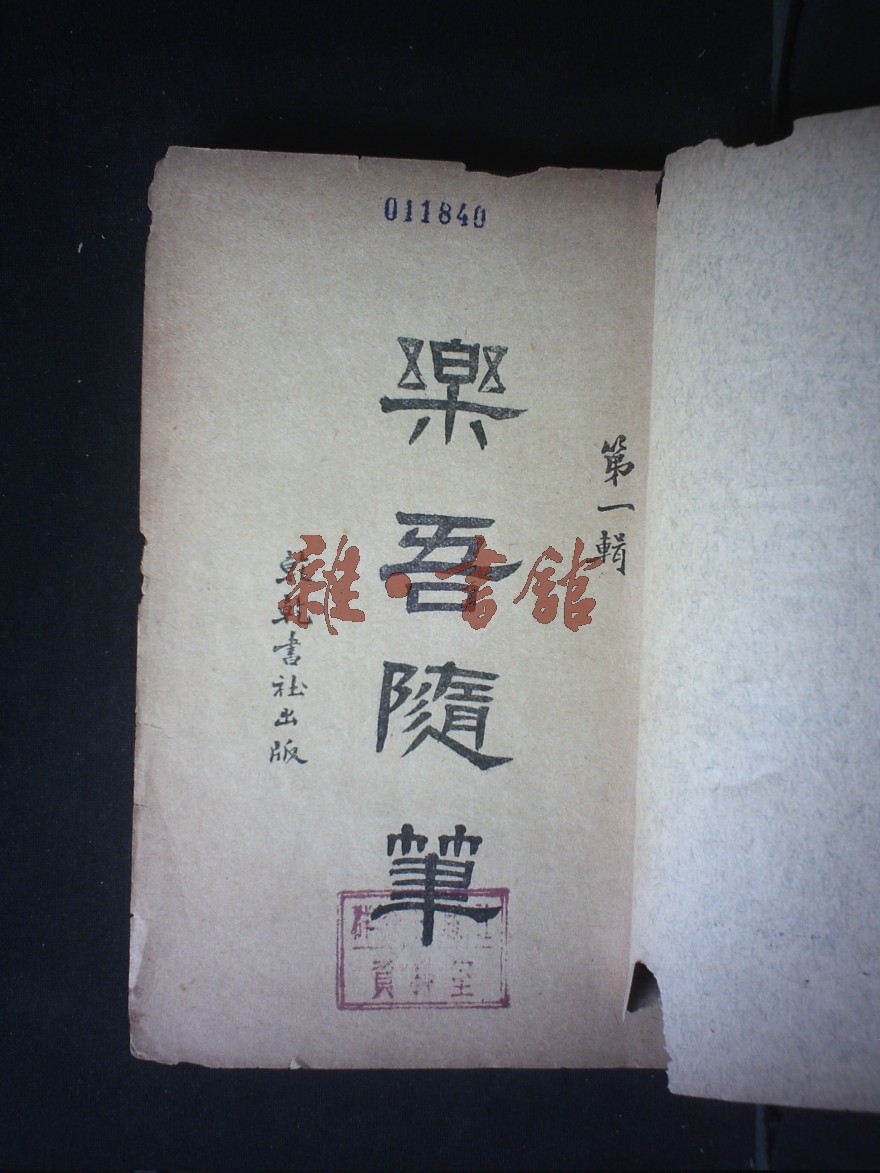 011840
第一輯
樂吾隨筆
乾乾書社出版
雜·書館
資料室